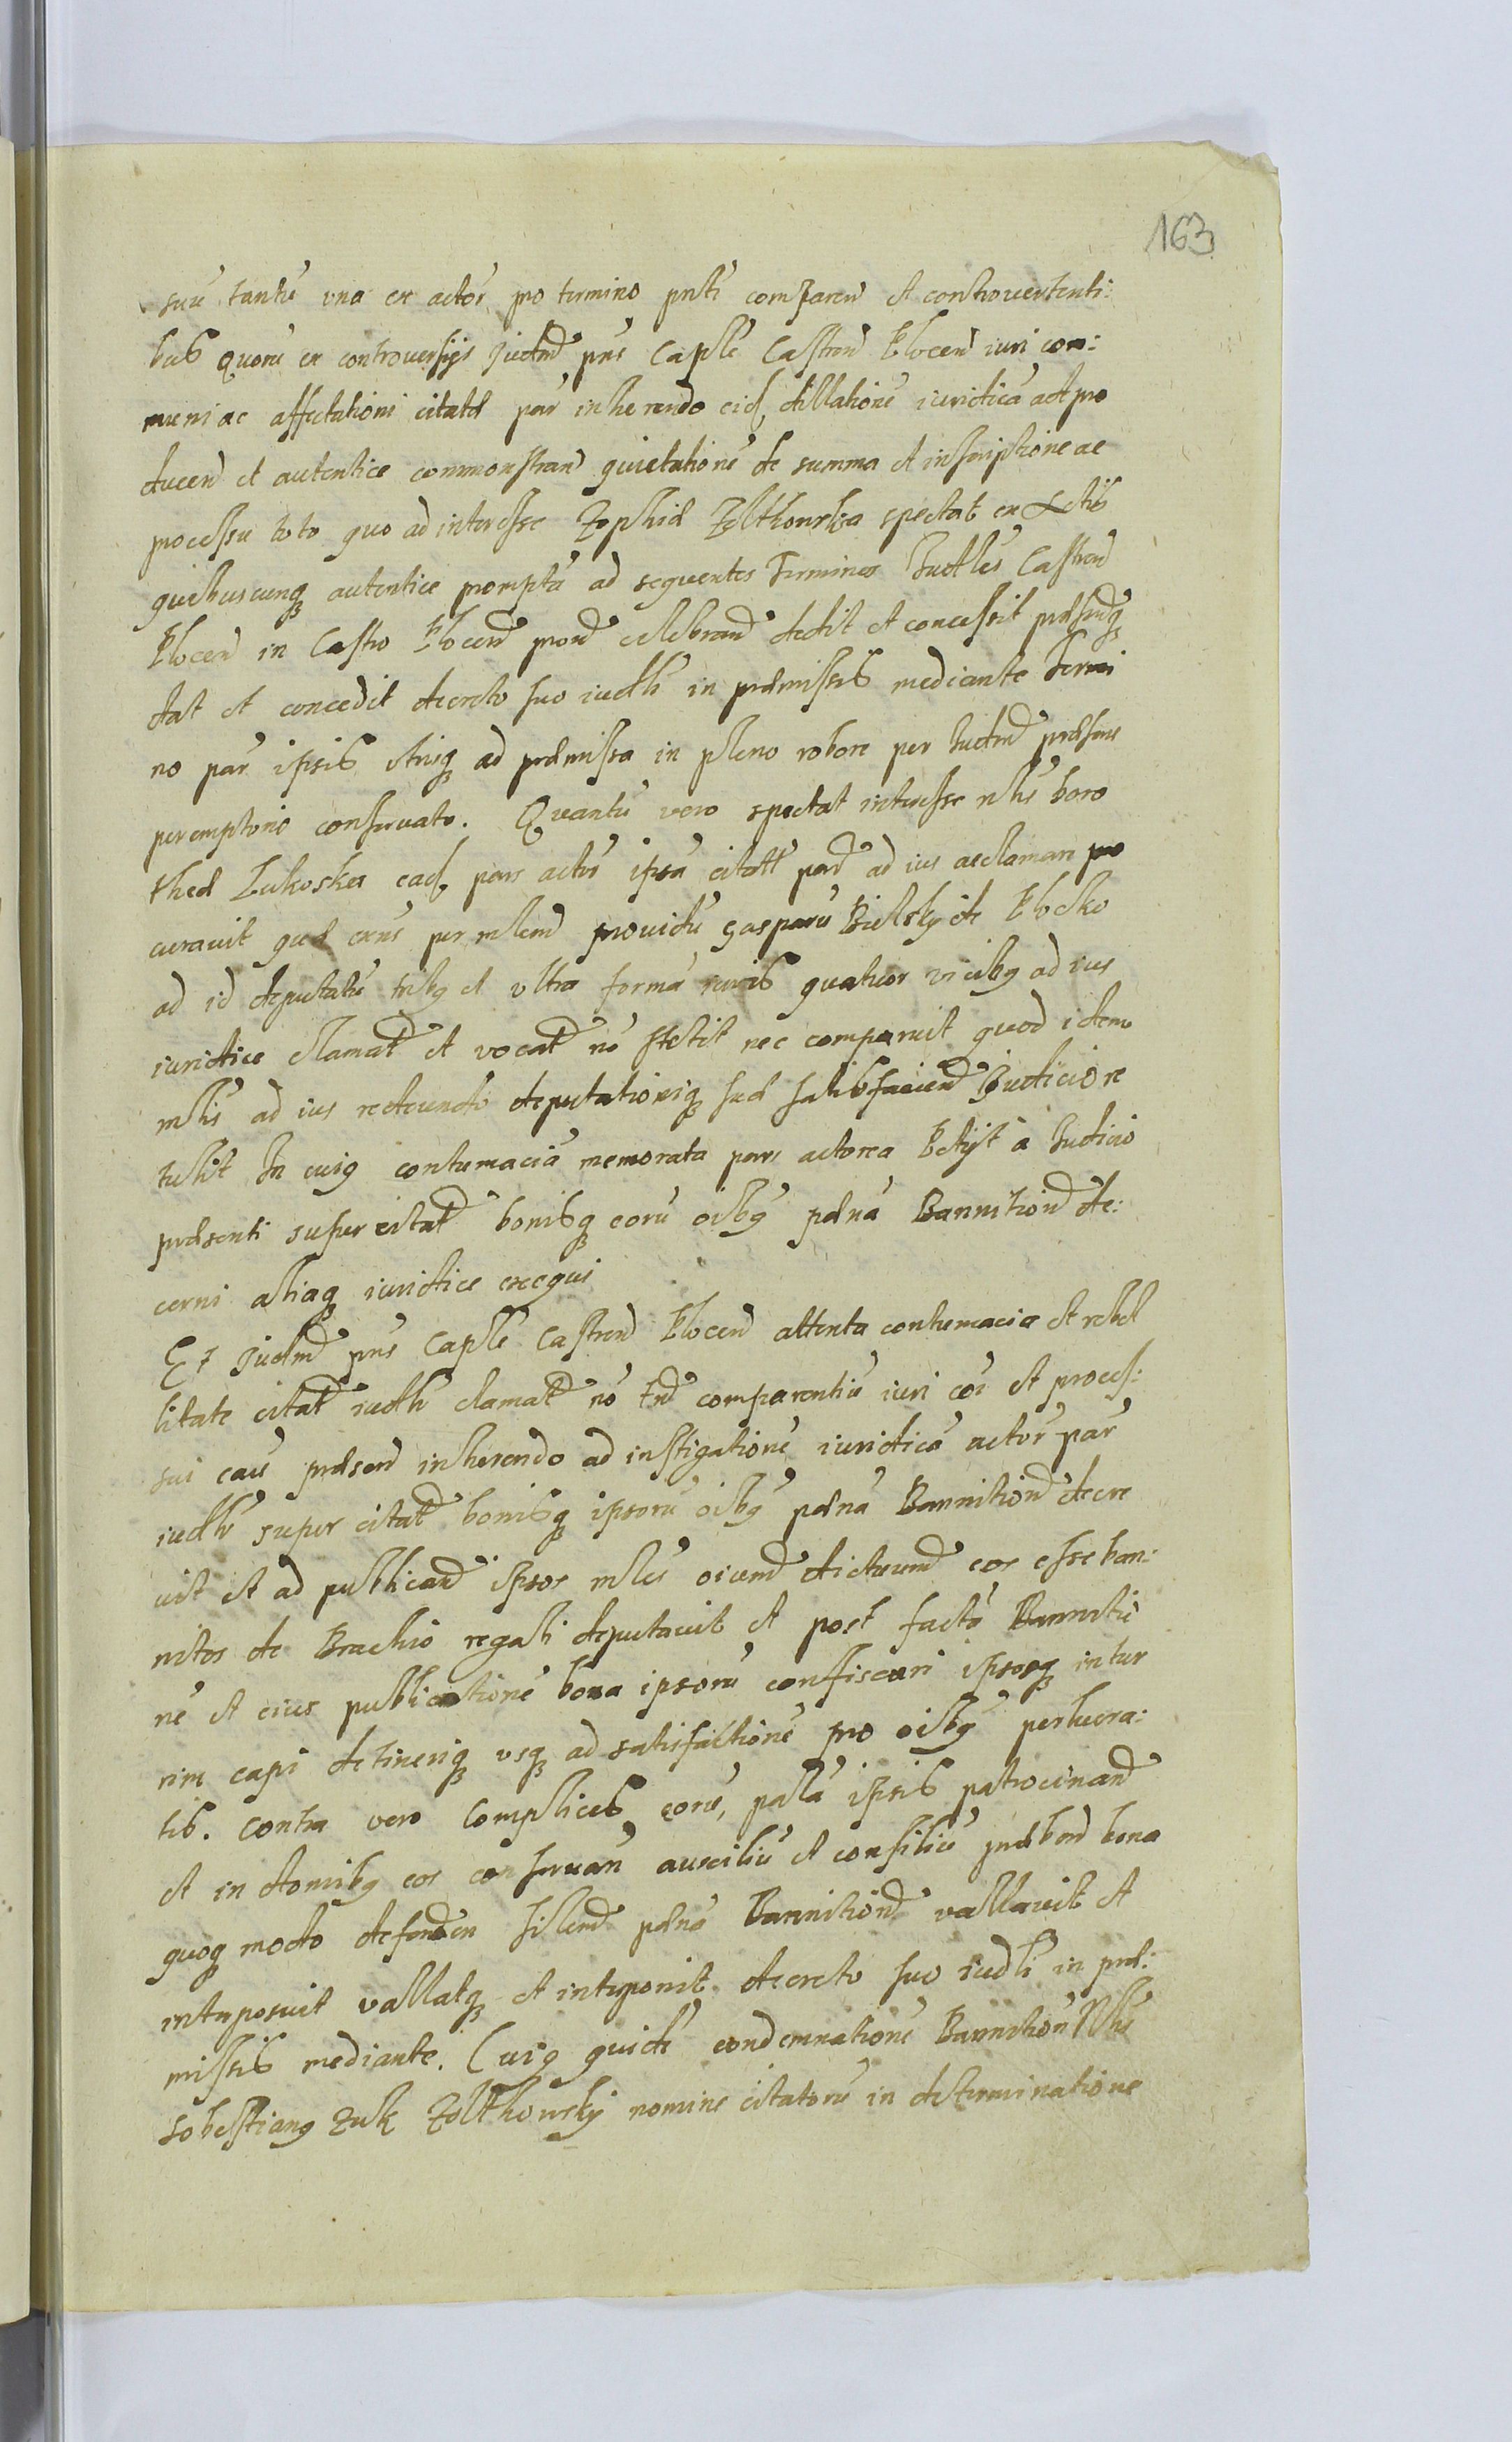 163
suũ tantũ una ex actor̃ pro termino pnti comparen̄ et controvertenti:
bus Quorũ ex controversijs Judm̄ pns Caplẽ Castren̄ Plocen̄ iuri com:
muni ac affectationi citatæ par̃ inherendo eid. dillationẽ iuridicã ad pro
ducen̄ et autentice commonstran̄ quietationẽ de summa et inscriptione ac
processu toto quo ad interesse Zophiæ Zolthowska spectat ex Actis
quibuscunq autentice promptã ad sequentes Terminos Judles Castren̄
Plocen̄ in Castro Plocen̄ pron̄ celebran̄ dedit et concessit præsenq
dat et concedit decreto suo iudli in præmissis mediante Termi
no par̃ ipsis utrisq ad præmissa in pleno robore per Judm̄ præsens
peremptorio conservato. Quantũ vero spectat interesse nlis Doro
theæ Zukoska ead. pars actor̃ ipsã citat̄ par̄ ad ius acclamari pro
curavit quæ exns per mlem̄ providũ Gasparũ Bielsky de Plocko
ad id deputatũ tribq et ultra formã iuris quatuor vicibq ad ius
iuridice clamat̄ et vocat̄ nõ stetit nec comparuit quod idem
mlis ad ius redeundo deputationiq suæ satisfacien̄ Judicio re
tulit In cuiq contumaciã memorata pars actorea Petijt a Judicio
præsenti super citat̄ bonisq eorũ oibq pænã Bannition̄ de:
cerni aliaq iuridice exequi
Et Judm̄ pns Caplẽ Castren̄ Plocen̄ attenta contumacia et rebel
litate citat̄ iudli clamat̄ nõ tn̄ comparentiũ iuri coi et proces:
sui caũ præsen̄ inherendo ad instigationẽ iuridicã actor̃ par̃
iudli super citat̄ bonisq ipsorũ oibq pænã Bannition̄ decre
vit et ad publican̄ ipsos mles oiem̄ dicturum̄ eos esse ban:
nitos de Brachio regali deputavit et post factã Bannitio
nẽ et eius publicationẽ bona ipsorũ confiscari ipsosq intur
rim capi detineriq usq ad satisfactionẽ pro oibq perlucra:
tis. Contra vero Complices eorũ, palã ipsis patrocinan̄
et in domibq eos conservan̄ auxiliũ et consiliũ præben̄ bona
quoq modo defenden silem̄ pænã Bannition̄ vallavit et
interposuit vallatq et interponit decreto suo iudli in præ:
missis mediante. Cuiq quidẽ condemnationẽ Bannition̄ Nlis
Sobestianq Zuk Zolthowsky nomine citatorũ in determinatione